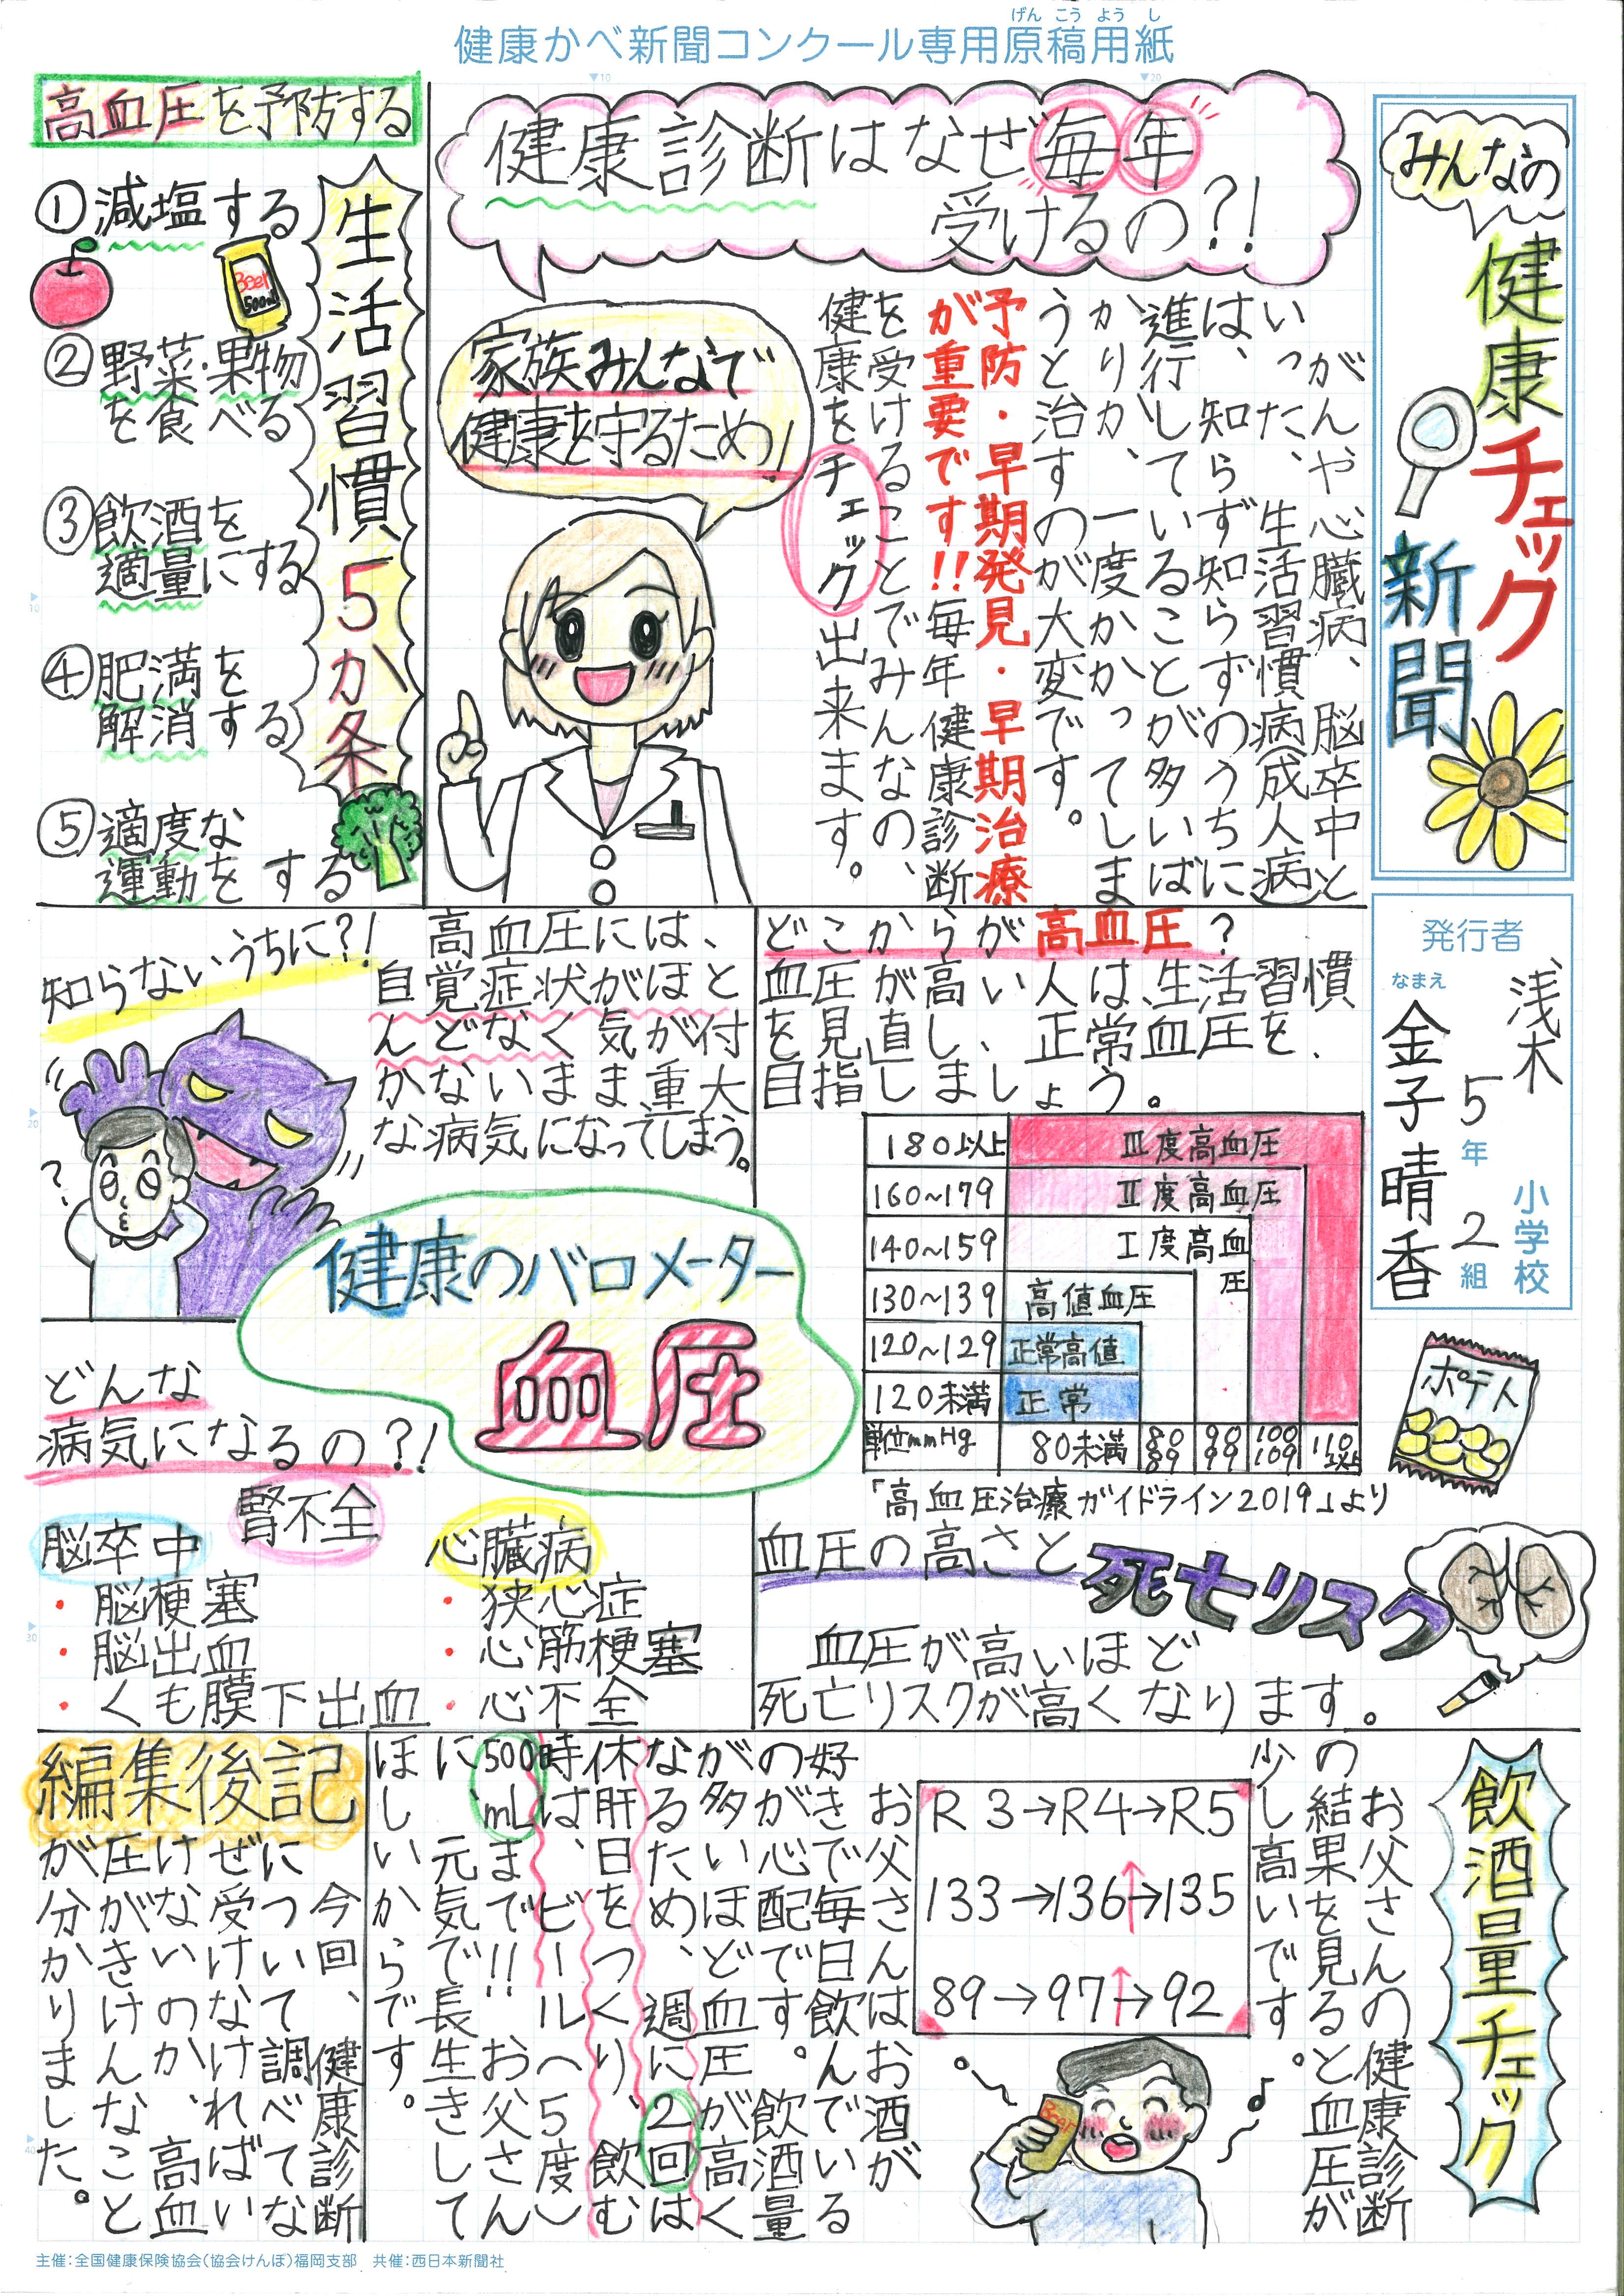 健康かべ新聞コンクール専用原稿用紙
げん こう よう し
みんなの
健康チェック
新聞
発行者
浅木
小学校
5年2組
なまえ
金子晴香
健康診断はなぜ毎年
受けるの?!
家族みんなで
健康を守るため!
がんや心臓病、脳卒中と
いった、生活習慣病(成人病)
は、知らず知らずのうちに
進行していることが多いば
かりか、一度かかってしま
うと治すのが大変です。
予防・早期発見・早期治療
が重要です!!毎年健康診断
を受けることでみんなの、
健康をチェック出来ます。
高血圧を予防する
生活習慣5か条
①減塩する
Beer
500ml
②野菜・果物
を食べる
③飲酒を
適量にする
④肥満を
解消する
⑤適度な
運動をする
どこからが高血圧?
血圧が高い人は、生活習慣
を見直し、正常血圧を、
目指しましょう。
180以上 Ⅲ度高血圧
160~179 Ⅱ度高血圧
140~159 Ⅰ度高血圧
130~139 高値血圧
120~129 正常高値
120未満 正常
単位mmHg 80未満 80 89 90 99 100 109 110以上
「高血圧治療ガイドライン2019」より
ポテト
知らないうちに?!
高血圧には、
自覚症状がほと
んどなく気が付
かないまま、重大
な病気になってしまう。
?
健康のバロメーター
血圧
どんな
病気になるの?!
脳卒中
・脳梗塞
・脳出血
・くも膜下出血
腎不全
心臓病
・狭心症
・心筋梗塞
・心不全
血圧の高さと死亡リスク
血圧が高いほど
死亡リスクが高くなります。
飲酒量チェック
お父さんの健康診断
の結果を見ると血圧が
少し高いです。
R3→R4→R5
133→136→135
89→97→92
Beer
お父さんはお酒が
好きで毎日飲んでいる
のが心配です。飲酒量
が多いほど血圧が高く
なるため、週に2回は
休肝日をつくり、飲む
時は、ビール(5度)
500mLまで!!お父さん
に、元気で長生きして
ほしいからです。
編集後記
今回、健康診断
について調べてな
ぜ受けなければい
けないのか、高血
圧がきけんなこと
が分かりました。
主催:全国健康保険協会(協会けんぽ)福岡支部 共催:西日本新聞社